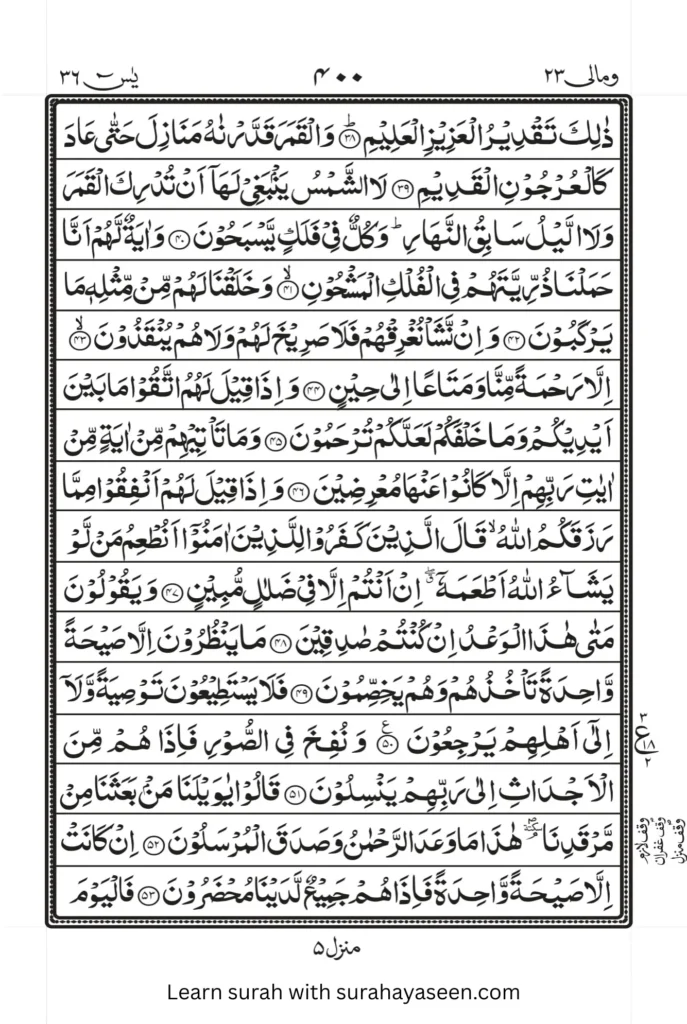 ومالی ۲۳
۴۰۰
یٰسٓ ۳۶
ذٰلِكَ تَقْدِيْرُ الْعَزِيْزِ الْعَلِيْمِ ؕ﴿۳۸﴾ وَالْقَمَرَ قَدَّرْنٰهُ مَنَازِلَ حَتّٰى عَادَ
كَالْعُرْجُوْنِ الْقَدِيْمِ ﴿۳۹﴾ لَا الشَّمْسُ يَنْۢبَغِىْ لَهَاۤ اَنْ تُدْرِكَ الْقَمَرَ
وَلَا الَّيْلُ سَابِقُ النَّهَارِ ؕ وَكُلٌّ فِىْ فَلَكٍ يَّسْبَحُوْنَ ﴿۴۰﴾ وَاٰيَةٌ لَّهُمْ اَنَّا
حَمَلْنَا ذُرِّيَّتَهُمْ فِى الْفُلْكِ الْمَشْحُوْنِ ۙ﴿۴۱﴾ وَخَلَقْنَا لَهُمْ مِّنْ مِّثْلِهٖ مَا
يَرْكَبُوْنَ ﴿۴۲﴾ وَاِنْ نَّشَاْ نُغْرِقْهُمْ فَلَا صَرِيْخَ لَهُمْ وَلَا هُمْ يُنْقَذُوْنَ ۙ﴿۴۳﴾
اِلَّا رَحْمَةً مِّنَّا وَمَتَاعًا اِلٰى حِيْنٍ ﴿۴۴﴾ وَاِذَا قِيْلَ لَهُمُ اتَّقُوْا مَا بَيْنَ
اَيْدِيْكُمْ وَمَا خَلْفَكُمْ لَعَلَّكُمْ تُرْحَمُوْنَ ﴿۴۵﴾ وَمَا تَاْتِيْهِمْ مِّنْ اٰيَةٍ مِّنْ
اٰيٰتِ رَبِّهِمْ اِلَّا كَانُوْا عَنْهَا مُعْرِضِيْنَ ﴿۴۶﴾ وَاِذَا قِيْلَ لَهُمْ اَنْفِقُوْا مِمَّا
رَزَقَكُمُ اللّٰهُ ۙ قَالَ الَّذِيْنَ كَفَرُوْا لِلَّذِيْنَ اٰمَنُوْۤا اَنُطْعِمُ مَنْ لَّوْ
يَشَآءُ اللّٰهُ اَطْعَمَهٗۤ ۖ اِنْ اَنْتُمْ اِلَّا فِىْ ضَلٰلٍ مُّبِيْنٍ ﴿۴۷﴾ وَيَقُوْلُوْنَ
مَتٰى هٰذَا الْوَعْدُ اِنْ كُنْتُمْ صٰدِقِيْنَ ﴿۴۸﴾ مَا يَنْظُرُوْنَ اِلَّا صَيْحَةً
وَّاحِدَةً تَاْخُذُهُمْ وَهُمْ يَخِصِّمُوْنَ ﴿۴۹﴾ فَلَا يَسْتَطِيْعُوْنَ تَوْصِيَةً وَّلَاۤ
اِلٰٓى اَهْلِهِمْ يَرْجِعُوْنَ ﴿۵۰﴾ ع وَنُفِخَ فِى الصُّوْرِ فَاِذَا هُمْ مِّنَ
۳ ع ۱۸ ۲
الْاَجْدَاثِ اِلٰى رَبِّهِمْ يَنْسِلُوْنَ ﴿۵۱﴾ قَالُوْا يٰوَيْلَنَا مَنْۢ بَعَثَنَا مِنْ
مَّرْقَدِنَا ۘ هٰذَا مَا وَعَدَ الرَّحْمٰنُ وَصَدَقَ الْمُرْسَلُوْنَ ﴿۵۲﴾ اِنْ كَانَتْ
وقف لازم
وقف غفران
وقف منزل
اِلَّا صَيْحَةً وَّاحِدَةً فَاِذَا هُمْ جَمِيْعٌ لَّدَيْنَا مُحْضَرُوْنَ ﴿۵۳﴾ فَالْيَوْمَ
منزل ۵
Learn surah with surahayaseen.com